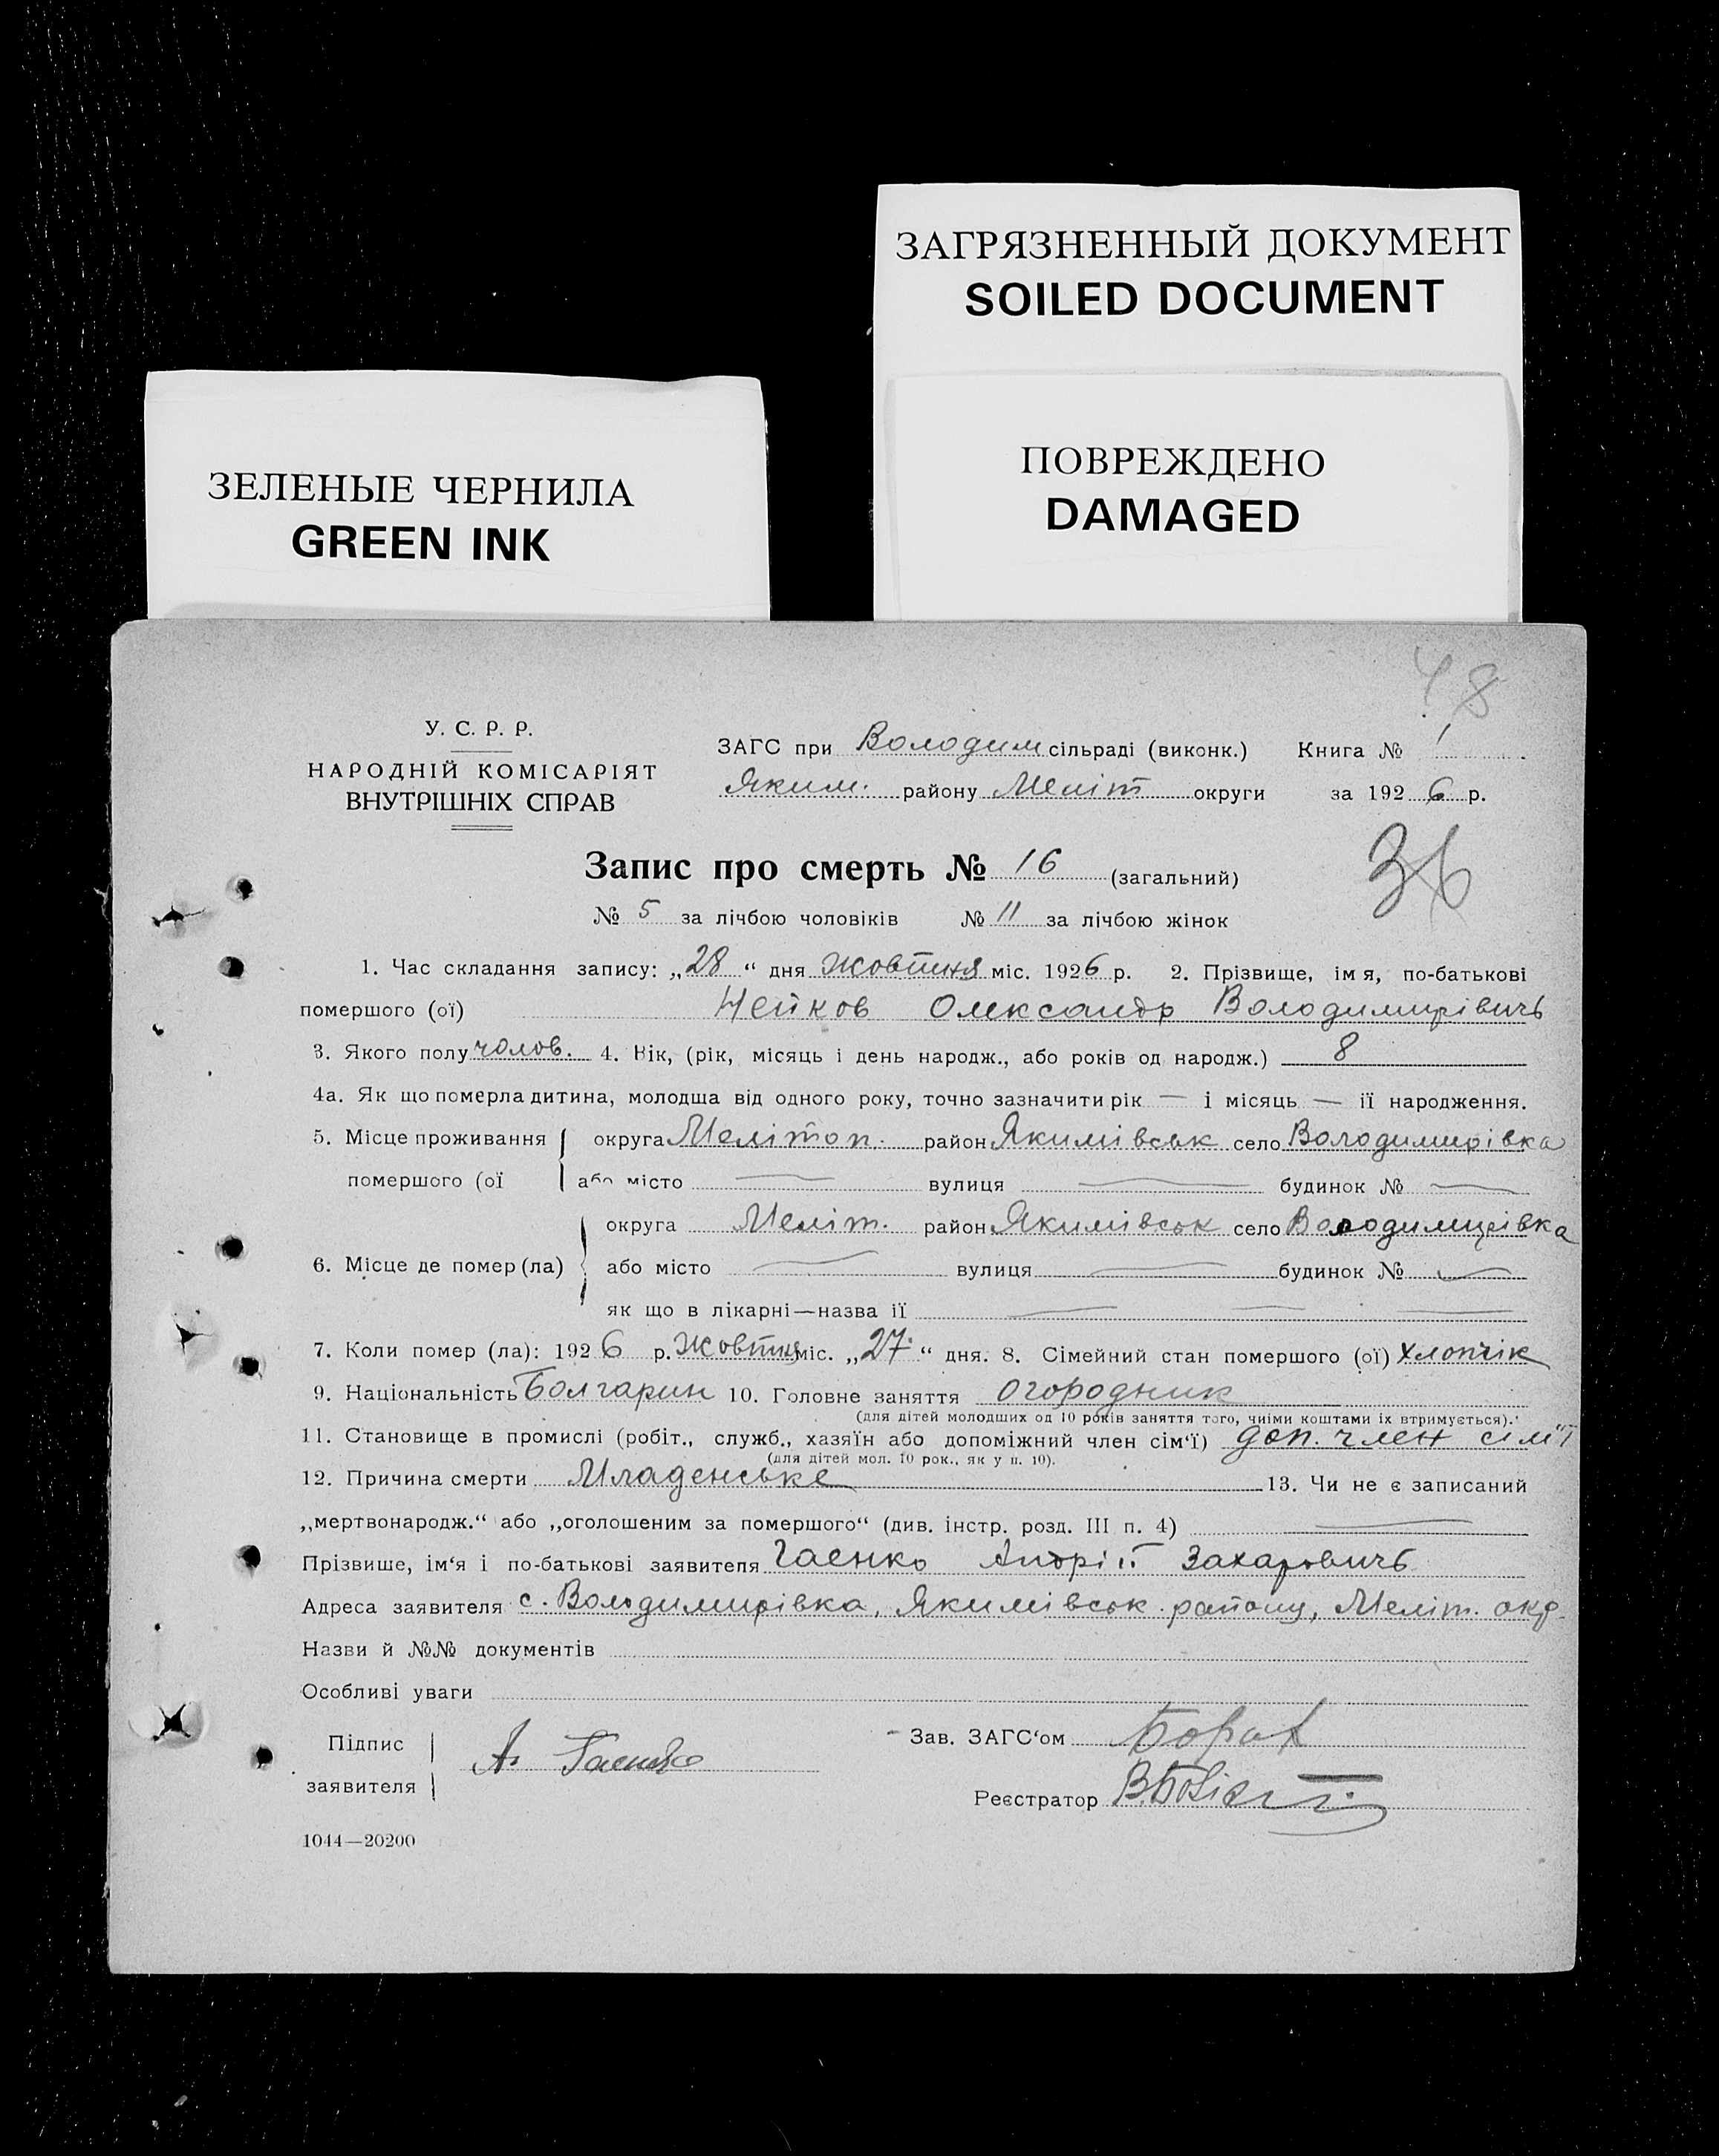 ЗАГРЯЗНЕННЫЙ ДОКУМЕНТ
SOILED DOCUMENT
ПОВРЕЖДЕНО
DAMAGED
ЗЕЛЕНЫЕ ЧЕРНИЛА
GREEN INK
48
У. С. Р. Р.
НАРОДНІЙ КОМІСАРІЯТ
ВНУТРІШНІХ СПРАВ
ЗАГС при Володим сільраді (виконк.) Книга № 1
Яким. району Меліт округи за 1926 р.
36
Запис про смерть № 16 (загальний)
№ 5 за лічбою чоловіків № 11 за лічбою жінок
1. Час складання запису: „28“ дня жовтня міс. 1926 р. 2. Прізвище, імя, по-батькові
помершого (ої) Нейков Олександр Володимирівичь
3. Якого полу чолов. 4. Вік, (рік, місяць і день народж., або років од народж.) 8
4а. Як що померла дитина, молодша від одного року, точно зазначити рік — і місяць — її народження.
5. Місце проживання округа Мелітоп. район Якимівськ село Володимирівка
помершого (ої або місто — вулиця — будинок № —
округа Меліт. район Якимівськ село Володимирівка
6. Місце де помер (ла) або місто — вулиця — будинок № —
як що в лікарні—назва її — — —
7. Коли помер (ла): 1926 р. Жовтня міс. „27“ дня. 8. Сімейний стан помершого (ої) хлопчік
9. Національність Болгарин 10. Головне заняття огородник
(для дітей молодших од 10 років заняття того, чиїми коштами їх втримується).
11. Становище в промислі (робіт., служб., хазяїн або допоміжний член сім‘ї) доп. член сім'ї
(для дітей мол. 10 рок., як у п. 10).
12. Причина смерти Младенське 13. Чи не є записаний
„мертвонародж.“ або „оголошеним за помершого“ (див. інстр. розд. III п. 4) —
Прізвише, ім‘я і по-батькові заявителя Гаєнко Андрій Захаровичь
Адреса заявителя с. Володимирівка, Якимівськ району, Меліт. окр.
Назви й №№ документів
Особливі уваги
Підпис
заявителя А. Гаєнко
Зав. ЗАГС‘ом
Реєстратор
1044—20200